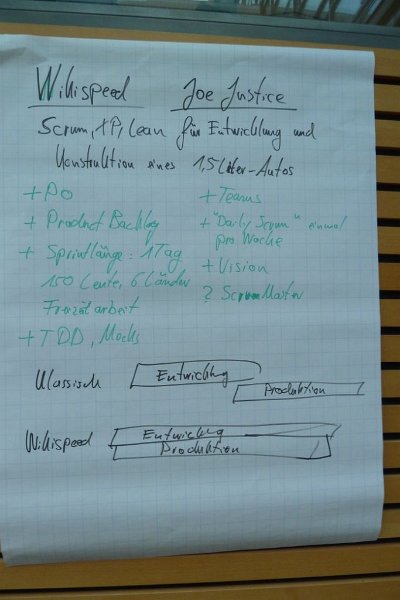 Wikispeed Joe Justice
Scrum, XP, Lean für Entwicklung und
Konstruktion eines 1,5 Liter-Autos
+ PO
+ Product Backlog
+ Sprintlänge: 1 Tag
150 Leute, 6 Länder
Freizeitarbeit
+ TDD, Mocks
+ Teams
+ "Daily Scrum" einmal
pro Woche
+ Vision
? ScrumMaster
Klassisch Entwicklung
Produktion
Wikispeed Entwicklung
Produktion